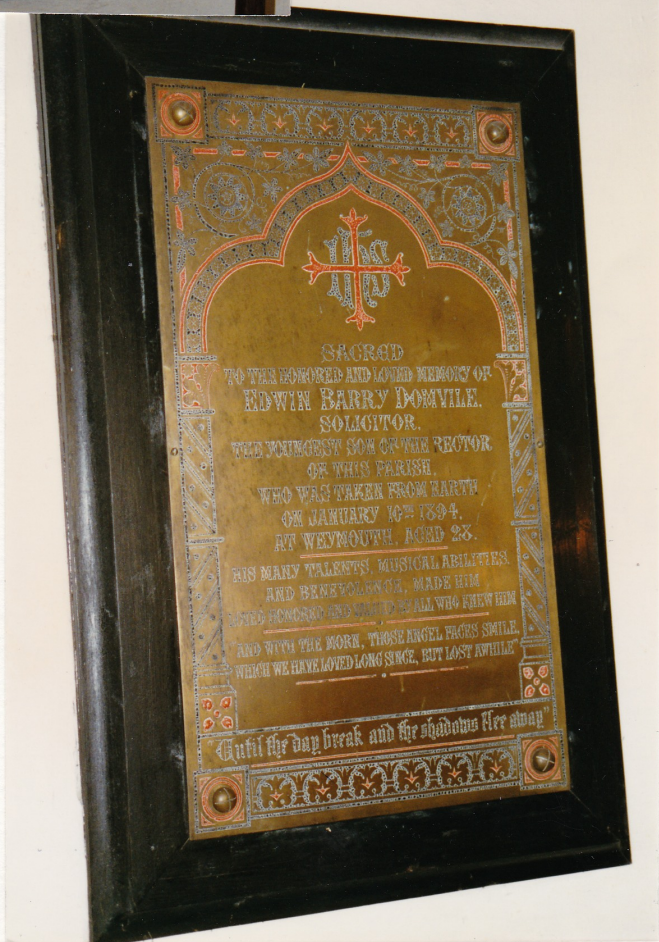 IHS
SACRED
TO THE HONORED AND LOVED MEMORY OF
EDWIN BARRY DOMVILE.
SOLICITOR.
THE YOUNGEST SON OF THE RECTOR
OF THIS PARISH.
WHO WAS TAKEN FROM EARTH
ON JANUARY 16TH 1894.
AT WEYMOUTH, AGED 28.
HIS MANY TALENTS, MUSICAL ABILITIES,
AND BENEVOLENCE, MADE HIM
HONORED AND BY ALL WHO KNEW HIM
"AND WITH THE MORN, THOSE ANGEL FACES SMILE,
WHICH WE HAVE LOVED LONG SINCE, BUT LOST AWHILE"
"Until the day break and the shadows flee away"